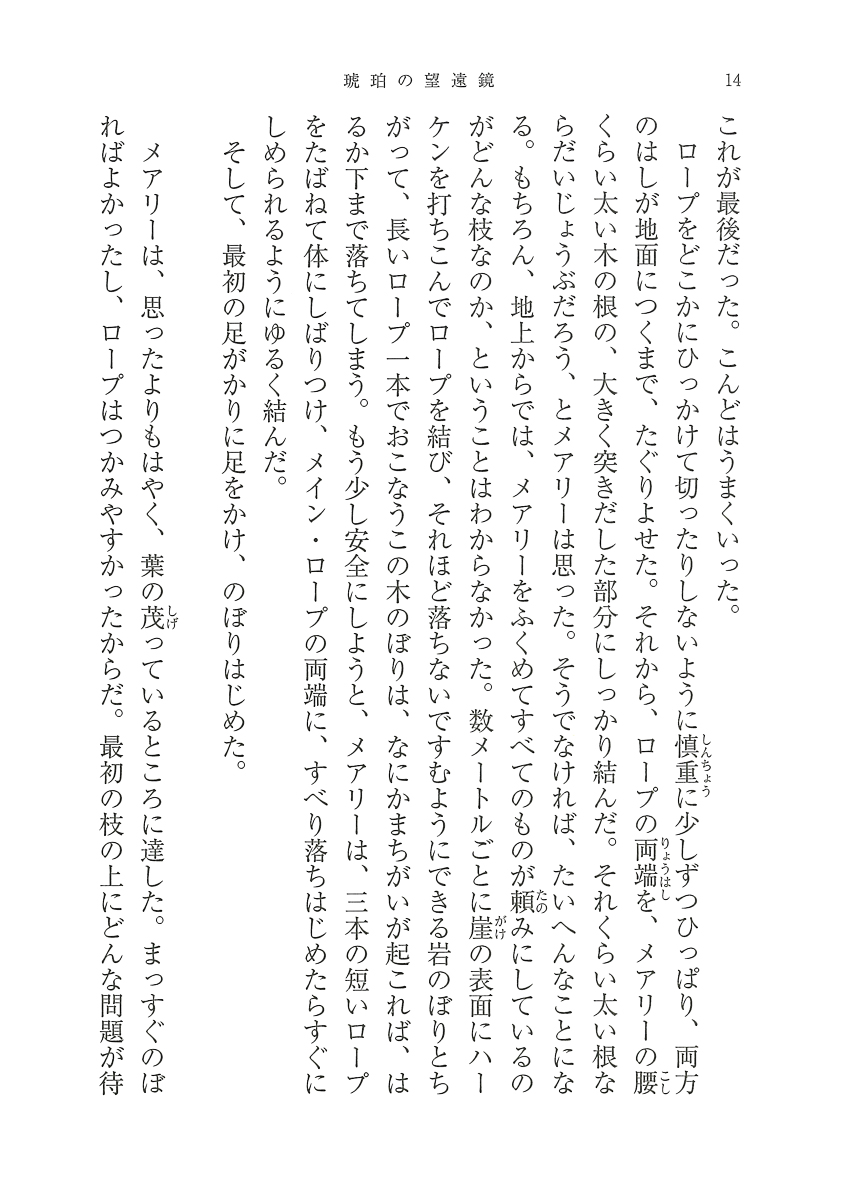 琥珀の望遠鏡
14
これが最後だった。こんどはうまくいった。
ロープをどこかにひっかけて切ったりしないように慎重に少しずつひっぱり、両方
のはしが地面につくまで、たぐりよせた。それから、ロープの両端を、メアリーの腰
くらい太い木の根の、大きく突きだした部分にしっかり結んだ。それくらい太い根な
らだいじょうぶだろう、とメアリーは思った。そうでなければ、たいへんなことにな
る。もちろん、地上からでは、メアリーをふくめてすべてのものが頼みにしているの
がどんな枝なのか、ということはわからなかった。数メートルごとに崖の表面にハー
ケンを打ちこんでロープを結び、それほど落ちないですむようにできる岩のぼりとち
がって、長いロープ一本でおこなうこの木のぼりは、なにかまちがいが起これば、は
るか下まで落ちてしまう。もう少し安全にしようと、メアリーは、三本の短いロープ
をたばねて体にしばりつけ、メイン・ロープの両端に、すべり落ちはじめたらすぐに
しめられるようにゆるく結んだ。
そして、最初の足がかりに足をかけ、のぼりはじめた。
メアリーは、思ったよりもはやく、葉の茂っているところに達した。まっすぐのぼ
ればよかったし、ロープはつかみやすかったからだ。最初の枝の上にどんな問題が待